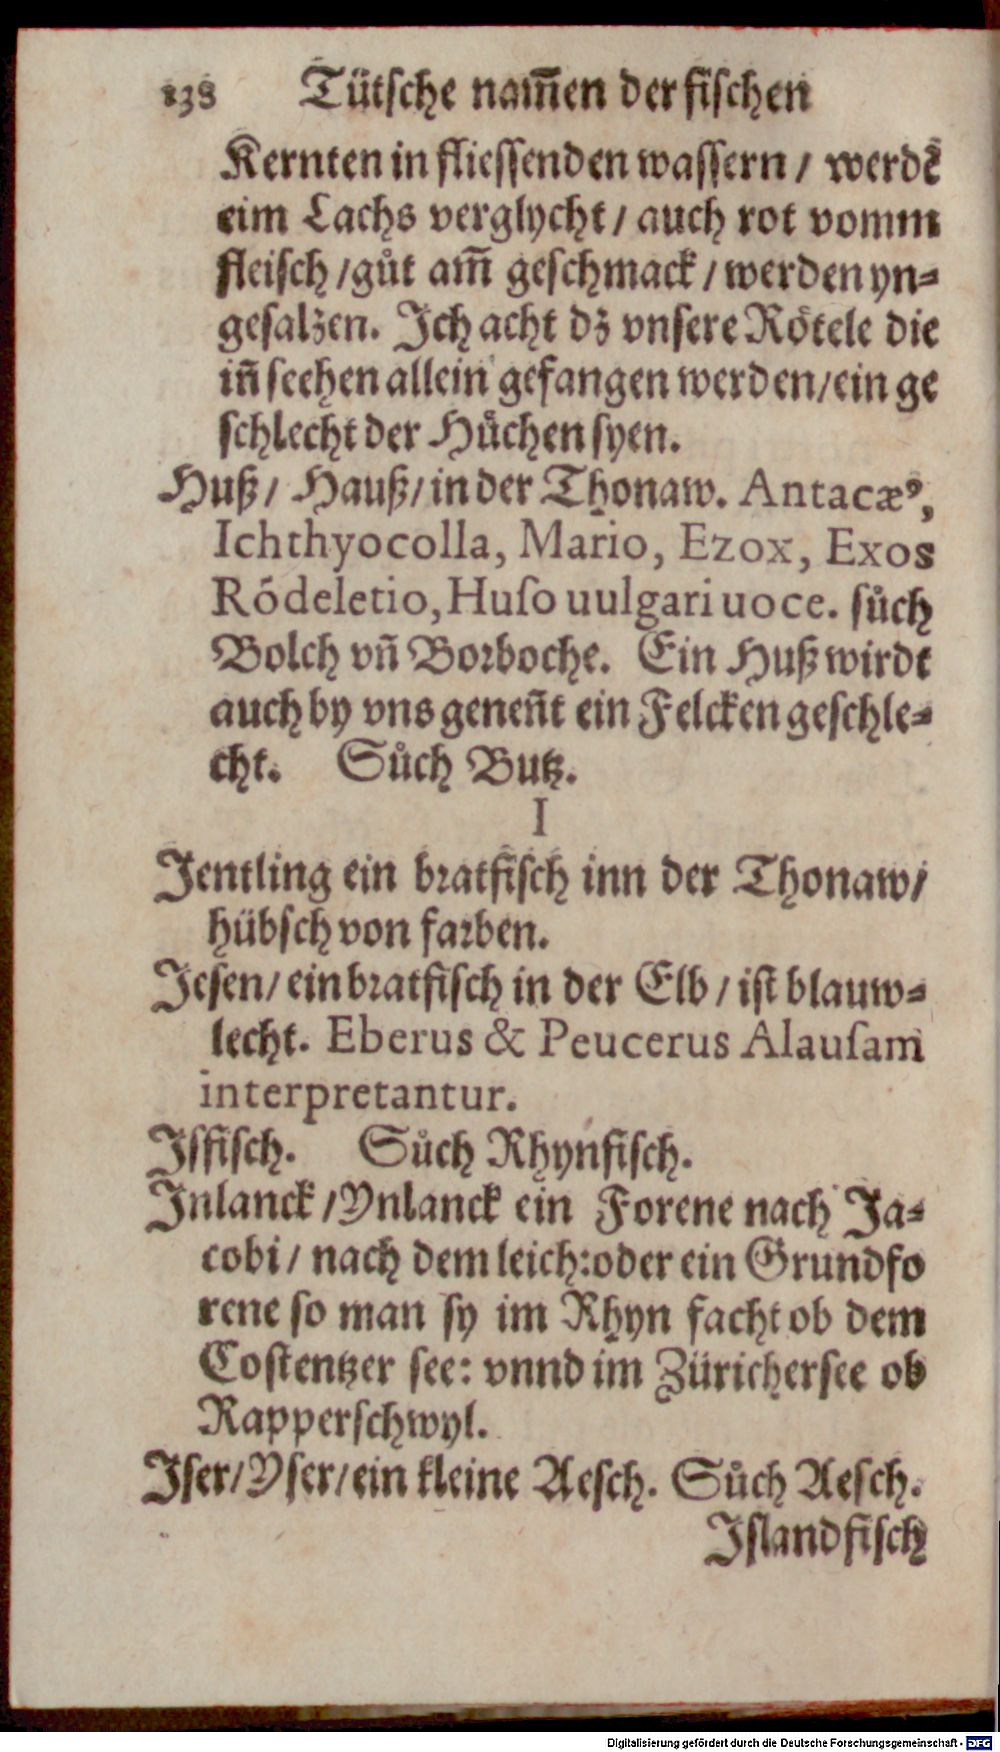 138 Tütsche nam̃en der fischen
Kernten in fliessenden wassern / werdẽ
eim Lachs verglycht / auch rot vomm
fleisch / gůt am̃ geschmack / werden yn⸗
gesalzen. Ich acht dz vnsere Rötele die
iñ seehen allein gefangen werden / ein ge
schlecht der Hůchen syen.
Huß / Hauß / in der Thonaw. Antacæꝰ,
Ichthyocolla, Mario, Ezox, Exos
Rõdeletio, Huſo uulgari uoce. sůch
Bolch vñ Borboche. Ein Huß wirdt
auch by vns geneñt ein Felcken geschle⸗
cht. Sůch Butz.
I
Jentling ein bratfisch inn der Thonaw /
hübsch von farben.
Jesen / ein bratfisch in der Elb / ist blauw⸗
lecht. Eberus & Peucerus Alauſam
interpretantur.
Jsfisch. Sůch Rhynfisch.
Jnlanck / Ynlanck ein Forene nach Ja⸗
cobi / nach dem leich: oder ein Grundfo
rene so man sy im Rhyn facht ob dem
Costentzer see: vnnd im Zürichersee ob
Rapperschwyl.
Jser / Yser / ein kleine Aesch. Sůch Aesch.
Jslandfisch
Digitalisierung gefördert durch die Deutsche Forschungsgemeinschaft - DFG